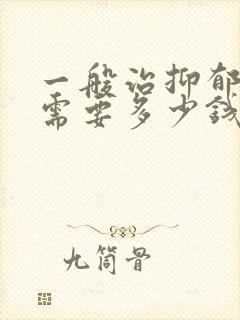 一般治抑郁
需要多少钱
九筒骨